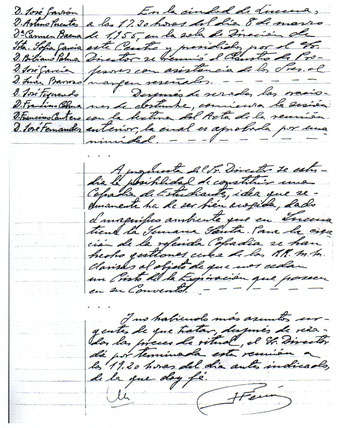 D. José Garzón
D. Arturo Puentes
Dª Carmen Baena
Srta. Sofía García
D. Bibiano Palma
D. José García
D. Luis Barros
D. José Fernando
D. Francisco Cantero
D. José Fernandez
En la ciudad de Lucena,
a las 17.20 horas del día 8 de marzo
de 1.956, en la sala de Dirección de
este Centro y presidido por el Sr.
Director se reunió el Claustro de Pro-
fesores con asistencia de los Sres. al
margen reseñados.
Después de rezadas las oracio-
nes de costumbre, comienza la sesión
con la lectura del Acta de la reunión
anterior, la cual es aprobada por una-
nimidad.
A propuesta del Sr. Director se estu-
dia la posibilidad de constituir una
Cofradía de Estudiantes, idea que se-
guramente ha de ser bien acogida, dado
el magnífico ambiente que en Lucena
tiene la Semana Santa. Para la crea-
ción de la referida Cofradía se han
hecho gestiones cerca de las RR. MM.
clarisas al objeto de que nos cedan
un Cristo de la Expiración que poseen
en su Convento.
Y no habiendo más asuntos ur-
gentes de que tratar, después de reza-
das las preces de ritual, el Sr. Director
dá por terminada esta reunión a
las 19.20 horas del día antes indicado,
de la que doy fé.